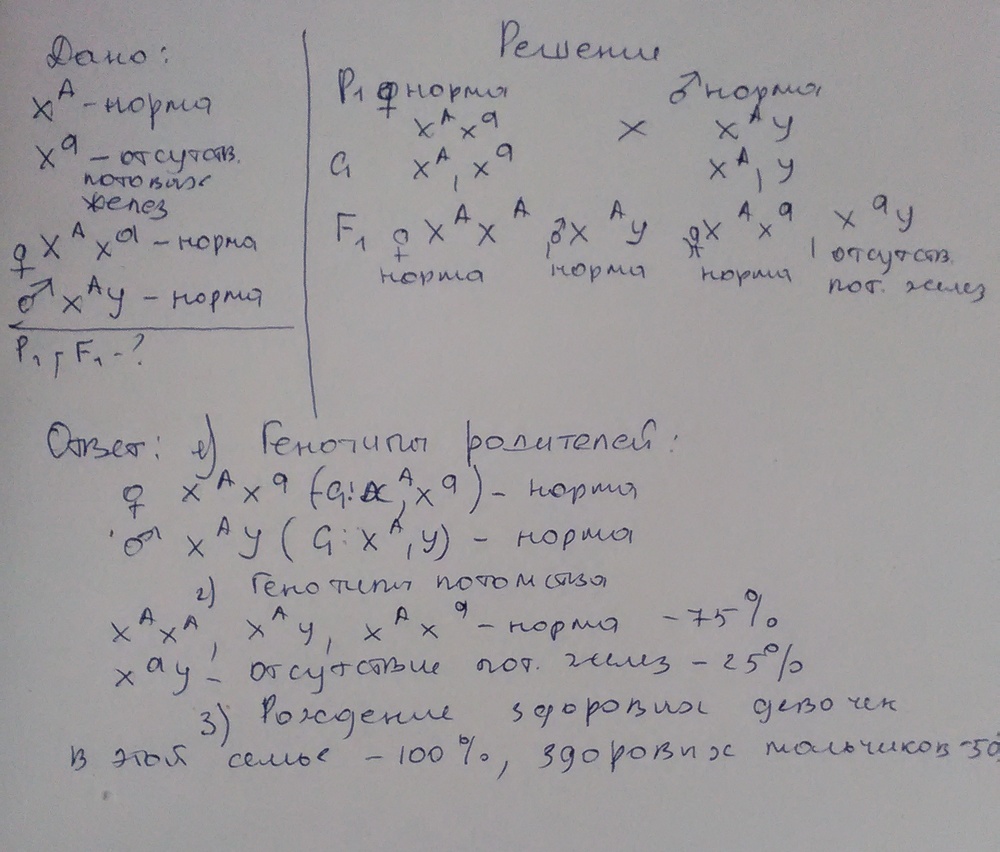 Дано:
X^A - норма
X^a - отсутств.
потовых
желез
♀ X^A X^a - норма
♂ X^A Y - норма
P₁, F₁ - ?
Решение
P₁ ♀ норма ♂ норма
X^A X^a × X^A Y
G X^A, X^a X^A, Y
F₁ ♀ X^A X^A, ♂ X^A Y ♀ X^A X^a, X^a Y
норма норма норма отсутств.
пот. желез
Ответ: 1) Генотипы родителей:
♀ X^A X^a (G: X^A, X^a) - норма
♂ X^A Y (G: X^A, Y) - норма
2) Генотипы потомства
X^A X^A, X^A Y, X^A X^a - норма - 75%
X^a Y - отсутствие пот. желез - 25%
3) Рождение здоровых девочек
в этой семье - 100%, здоровых мальчиков - 50